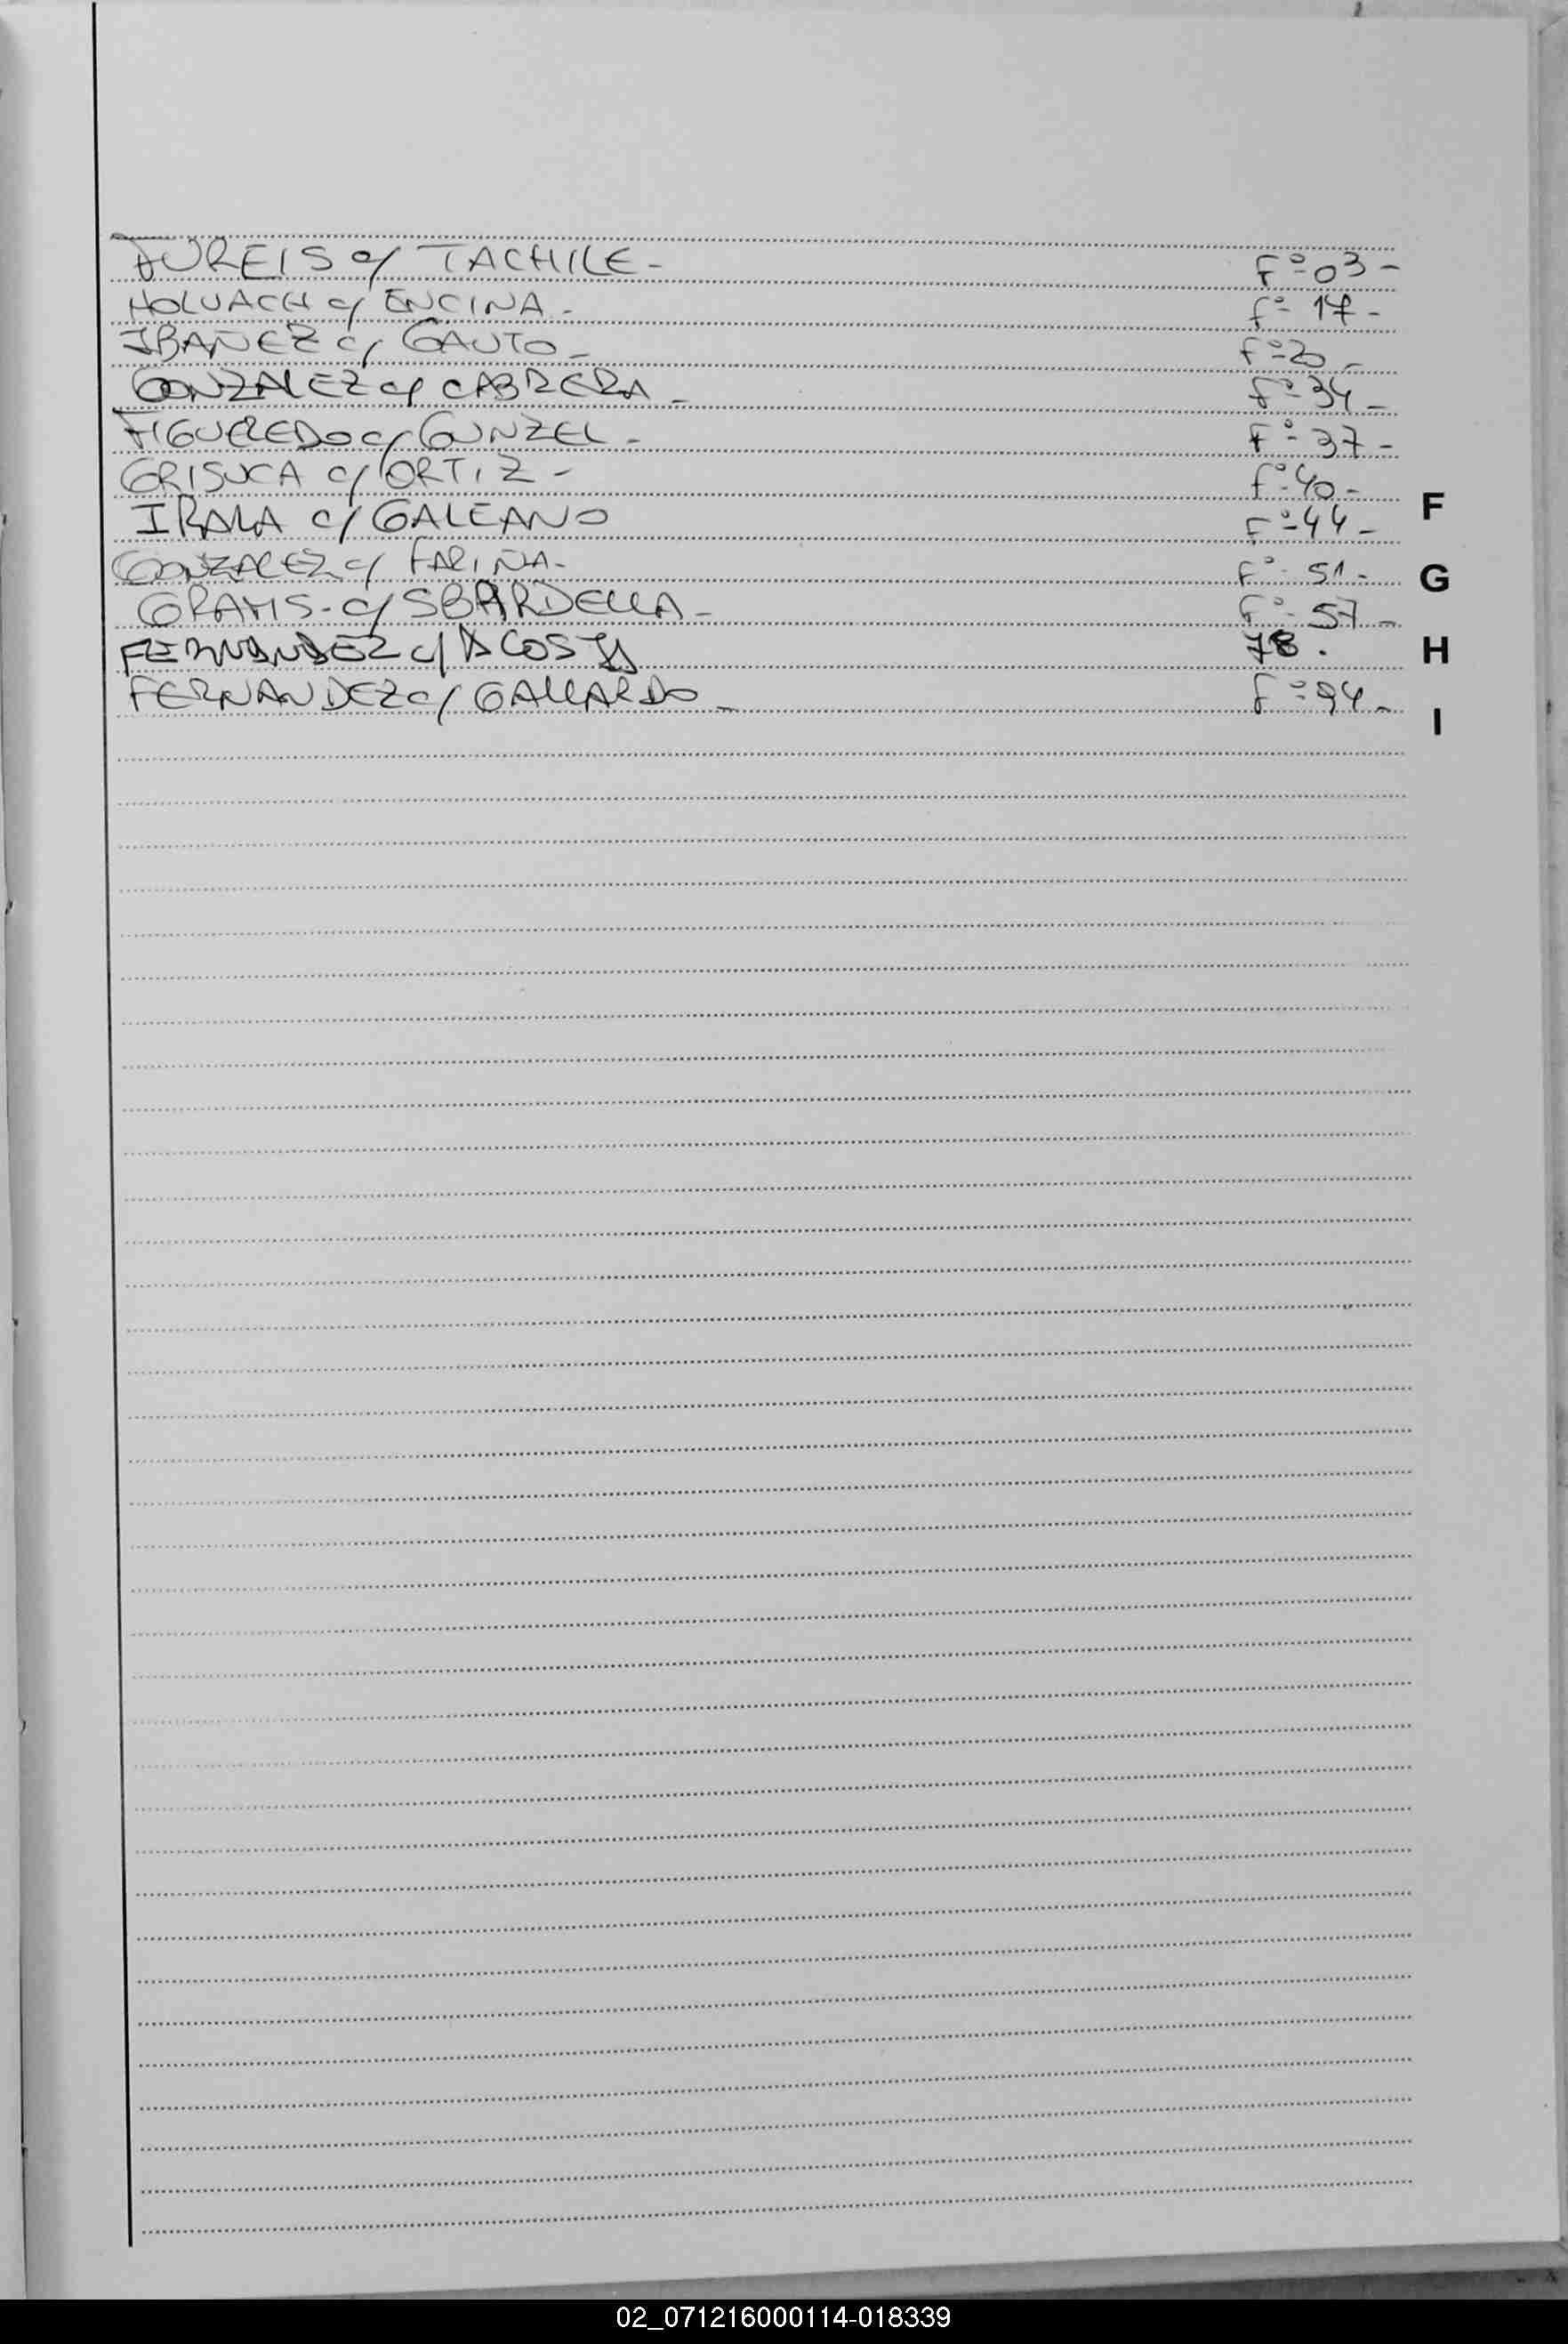 FUREIS c/ TACHILE- F° 03-
HOLUACH c/ ENCINA- f° 17-
IBAÑEZ c/ GAUTO- f° 20-
GONZALEZ c/ CABRERA- f° 34-
FIGUEREDO c/ GUNZEL- F° 37-
GRISUCA c/ ORTIZ- f° 40-
IRALA c/ GALEANO F° 44-
GONZALEZ c/ FARIÑA- F° 51-
GRAMS- c/ SBARDELLA- F° 57-
FERNANDEZ c/ ACOSTA 78.
FERNANDEZ c/ GALLARDO- F° 94-
F
G
H
I
02_071216000114-018339